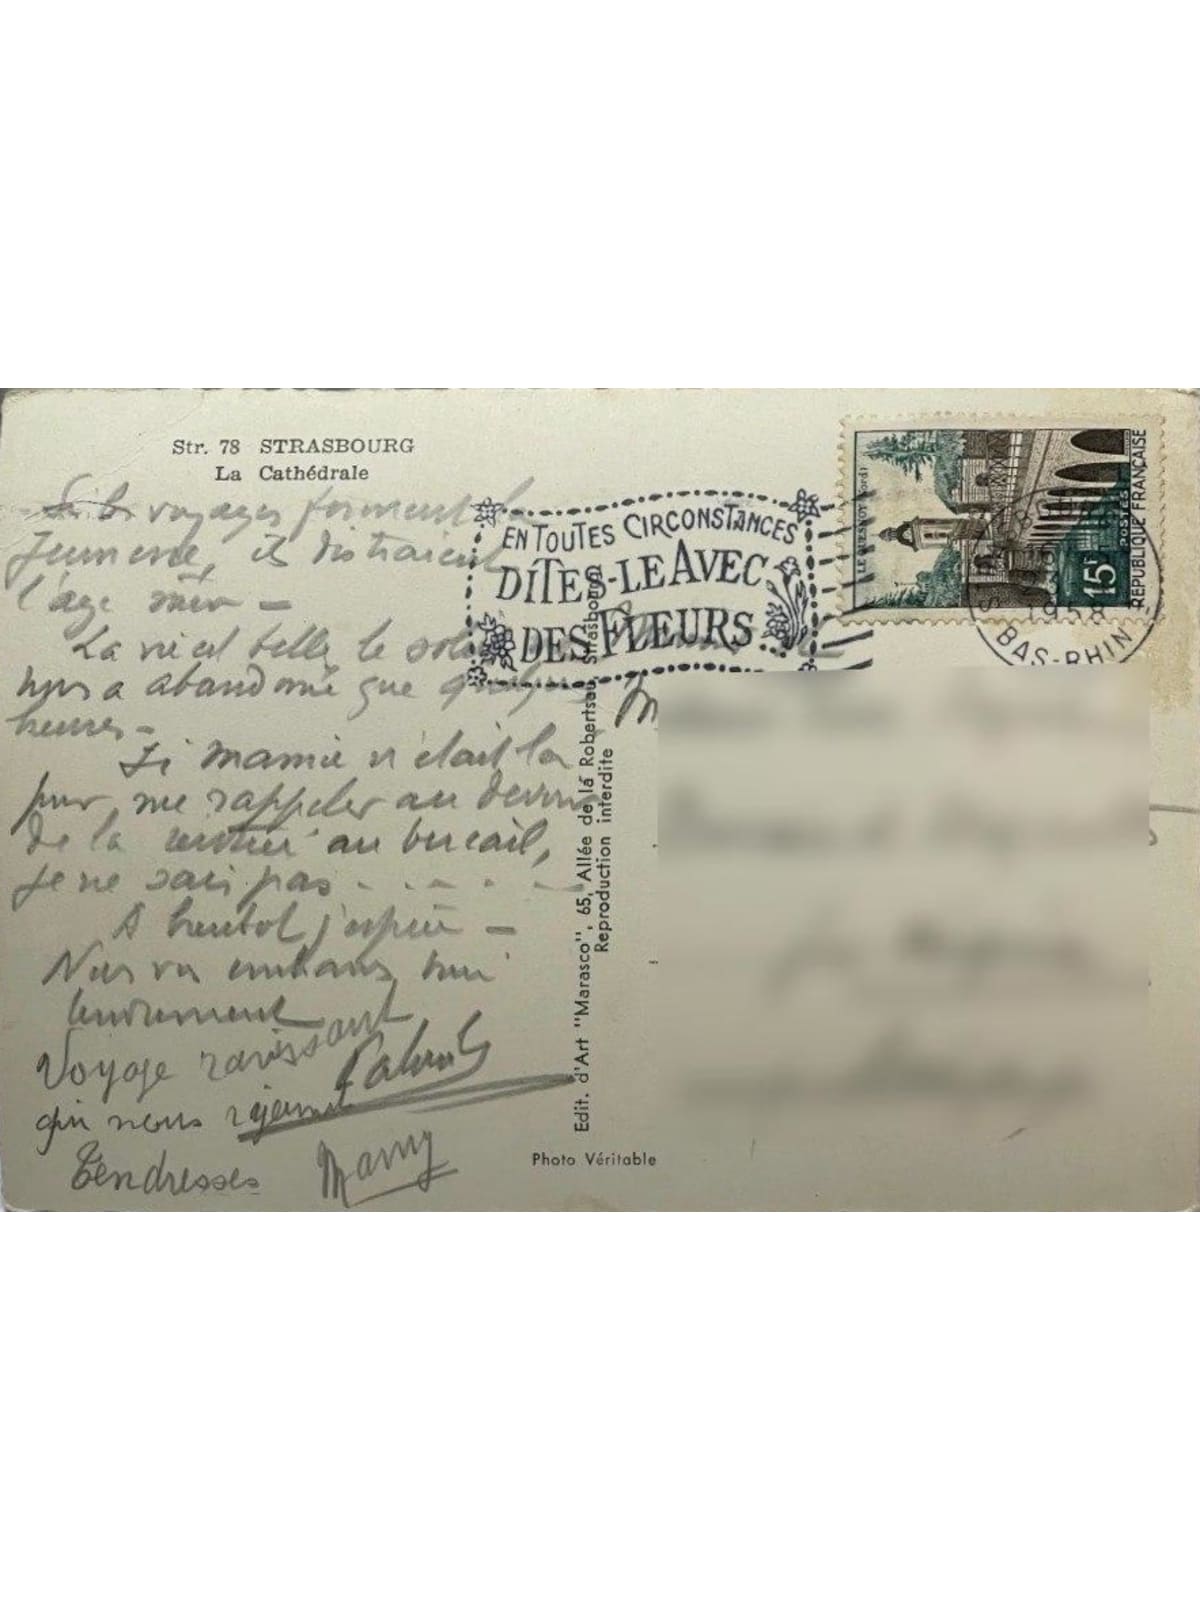 Str. 78 STRASBOURG
La Cathédrale
Si les voyages forment la
jeunesse, ils distraient
l'age mûr —
La vie est belle, le soleil
nous a abandonné que quelques
heures —
Si mamie n'était là
pour me rappeler au devoir
de la rentrée au bercail,
je ne sais pas - - - - -
A bientot j'espère —
Nous vous embrassons bien
tendrement
Voyage ravissant
qui nous rajeunit
Tendresses Mamy
EN TOUTES CIRCONSTANCES
DITES-LE AVEC
DES FLEURS
LE QUESNOY (Nord)
15F
POSTES
REPUBLIQUE FRANÇAISE
1958
BAS-RHIN
Edit. d'Art "Marasco", 65, Allée de la Robertsau, Strasbourg
Reproduction interdite
Photo Véritable